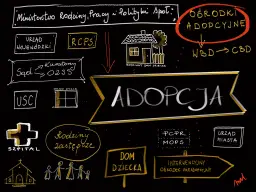 Ministerstwo Rodziny, Pracy i Polityki Społ.
OŚRODKI
ADOPCYJNE
URZĄD
WOJEWÓDZKI
RCPS
WBD → CBD
Sąd
Kuratorzy
OZSS
USC
ADOPCJA
SZPITAL
Rodziny
zastępcze
PCPR
MOPS
URZĄD
MIASTA
DOM
DZIECKA
INTERWENCYJNY
OŚRODEK PREADOPCYJNY